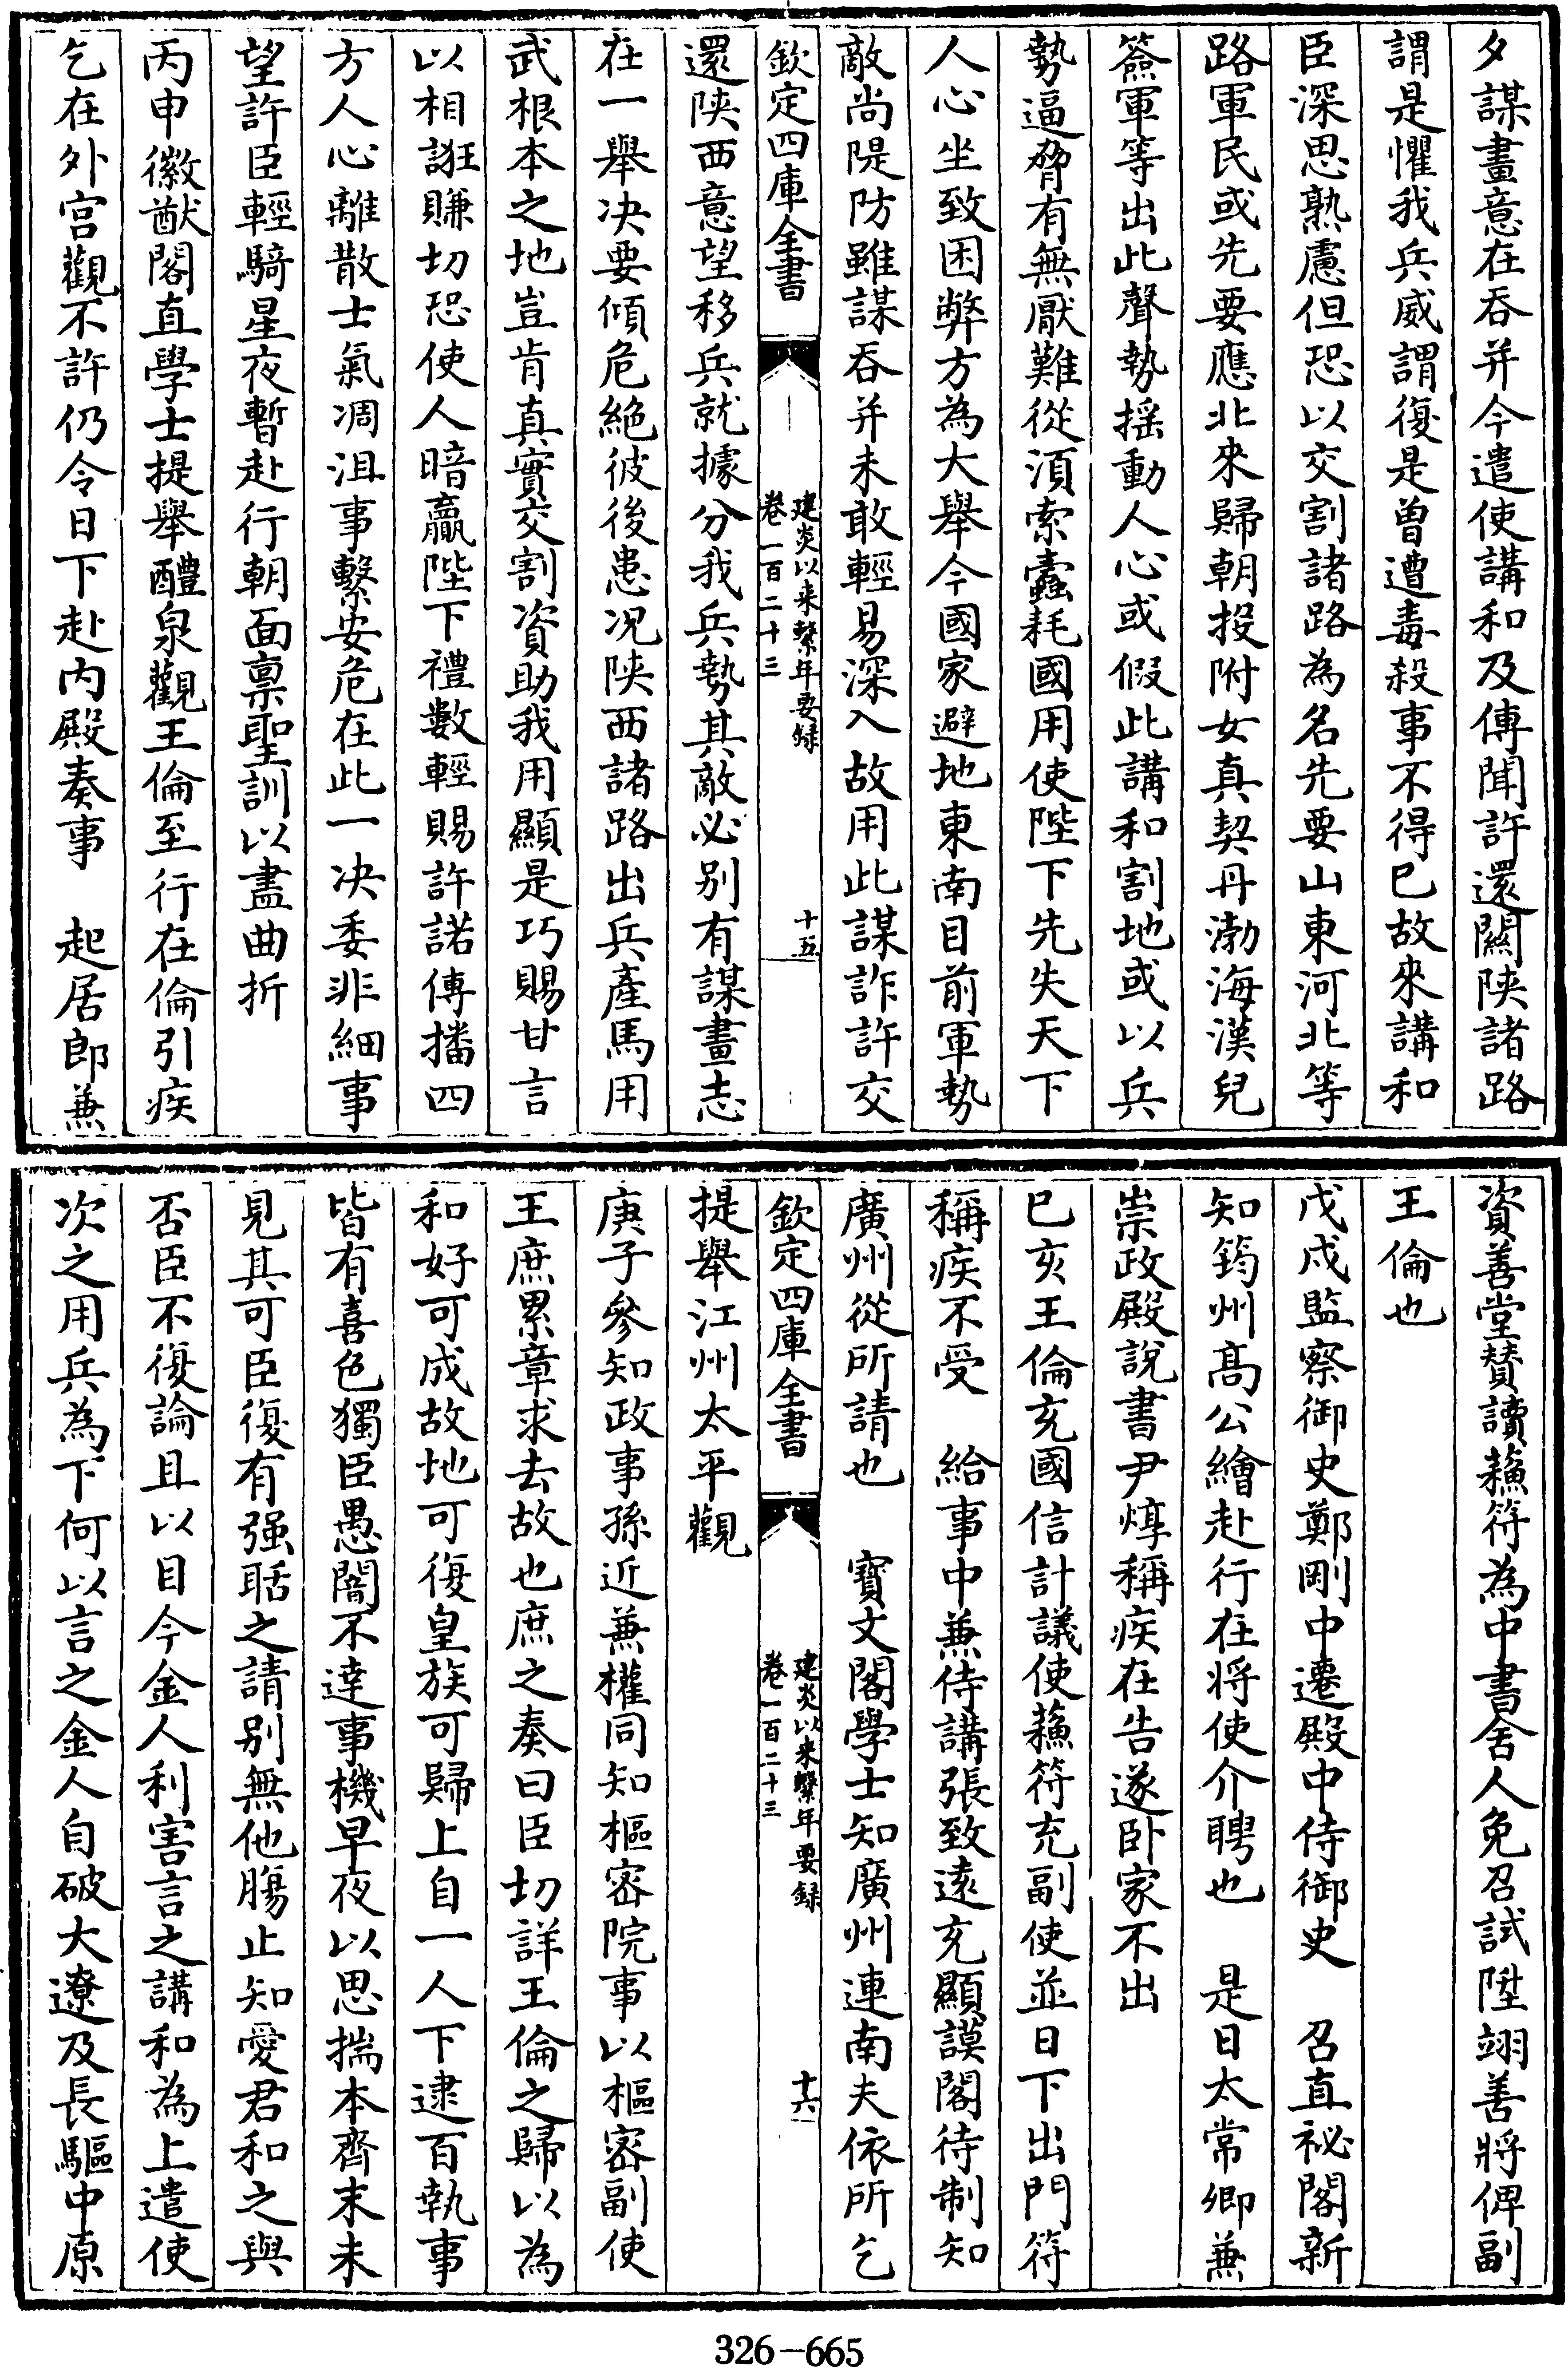 夕謀畫意在吞并今遣使講和及傳聞許還關陜諸路
謂是懼我兵威謂復是曾遭毒殺事不得已故來講和
臣深思熟慮但恐以交割諸路為名先要山東河北等
路軍民或先要應北來歸朝投附女真契丹渤海漢兒
簽軍等出此聲勢揺動人心或假此講和割地或以兵
勢逼脅有無厭難從湏索蠧耗國用使陛下先失天下
人心坐致困弊方為大舉今國家避地東南目前軍勢
敵尚隄防雖謀吞并未敢輕易深入故用此謀詐許交
欽定四庫全書
建炎以来繫年要録
卷一百二十三
十五
還陜西意望移兵就據分我兵勢其敵必别有謀畫志
在一舉决要傾危絶彼後患况陜西諸路出兵產馬用
武根本之地豈肯真實交割資助我用顯是巧賜甘言
以相誑賺切恐使人暗贏陛下禮數輕賜許諾傳播四
方人心離散士氣凋沮事繫安危在此一决委非細事
望許臣輕騎星夜暫赴行朝面禀聖訓以盡曲折
丙申徽猷閣直學士提舉醴泉觀王倫至行在倫引疾
乞在外宫觀不許仍令日下赴内殿奏事　起居郎兼
資善堂贊讀蘓符為中書舍人免召試陞翊善將俾副
王倫也
戊戍監察御史鄭剛中遷殿中侍御史　召直祕閣新
知筠州髙公繪赴行在将使介聘也　是日太常卿兼
崇政殿說書尹焞稱疾在告遂卧家不出
已亥王倫充國信計議使蘓符充副使並日下出門符
稱疾不受　給事中兼侍講張致遠充顯謨閣待制知
廣州從所請也　寳文閣學士知廣州連南夫依所乞
欽定四庫全書
建炎以来繫年要録
卷一百二十三
十六
提舉江州太平觀
庚子參知政事孫近兼權同知樞密院事以樞密副使
王庶累章求去故也庶之奏曰臣切詳王倫之歸以為
和好可成故地可復皇族可歸上自一人下逮百執事
皆有喜色獨臣愚闇不達事機早夜以思揣本齊末未
見其可臣復有强聒之請别無他腸止知愛君和之與
否臣不復論且以目今金人利害言之講和為上遣使
次之用兵為下何以言之金人自破大遼及長驅中原
326-665